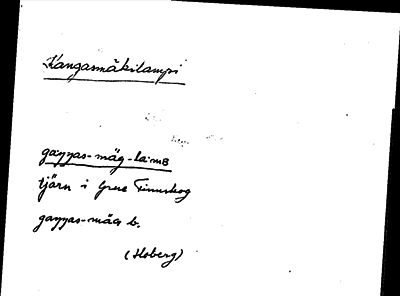 Kangasmäkilampi
gaŋŋas-mäg-la:mʙ
tjärn i Grue Finnskog
gaŋŋas-mäg b.
(Hoberg)